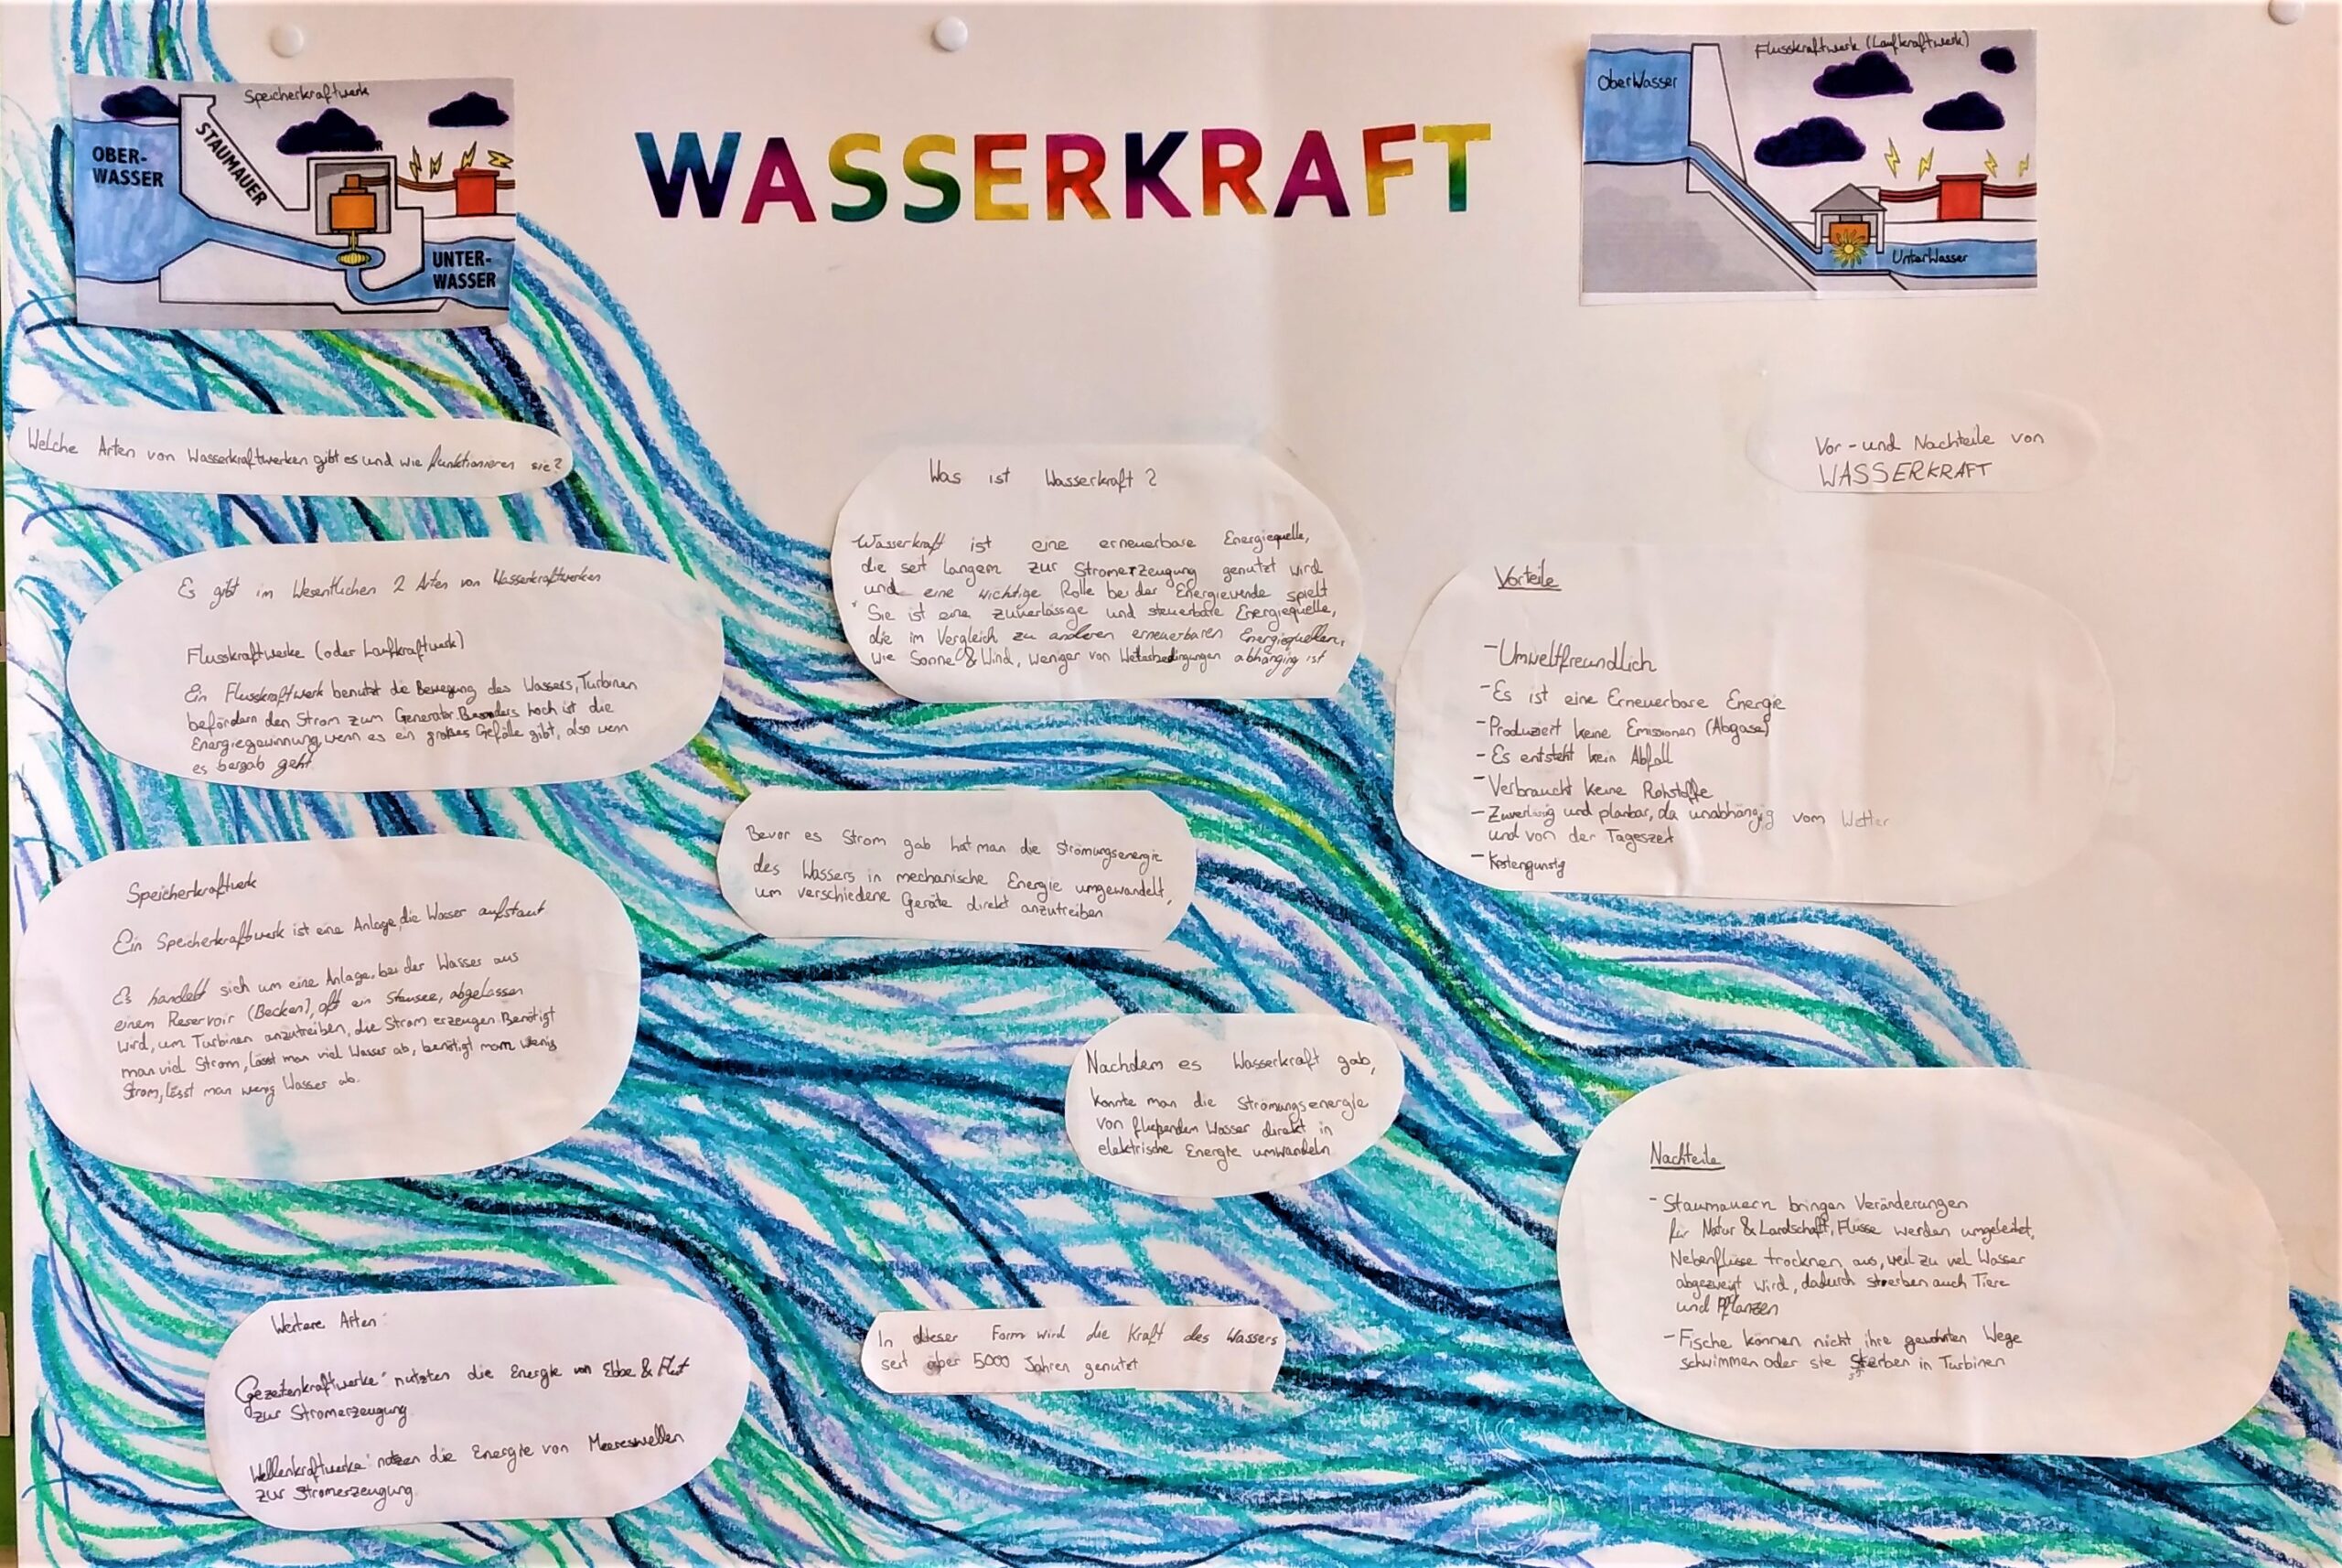 WASSERKRAFT
Speicherkraftwerk
OBER-
WASSER
STAUMAUER
UNTER-
WASSER
Flusskraftwerk (Laufkraftwerk)
OberWasser
UnterWasser
Welche Arten von Wasserkraftwerken gibt es und wie funktionieren sie?
Es gibt im Wesentlichen 2 Arten von Wasserkraftwerken
Flusskraftwerke (oder Laufkraftwerk)
Ein Flusskraftwerk benutzt die Bewegung des Wassers, Turbinen
befördern den Strom zum Generator. Besonders hoch ist die
Energiegewinnung, wenn es ein großes Gefälle gibt, also wenn
es bergab geht.
Speicherkraftwerk
Ein Speicherkraftwerk ist eine Anlage, die Wasser aufstaut.
Es handelt sich um eine Anlage, bei der Wasser aus
einem Reservoir (Becken), oft ein Stausee, abgelassen
wird, um Turbinen anzutreiben, die Strom erzeugen. Benötigt
man viel Strom, lässt man viel Wasser ab, benötigt man wenig
Strom, lässt man wenig Wasser ab.
Weitere Arten:
Gezeitenkraftwerke: nutzten die Energie von Ebbe & Flut
zur Stromerzeugung
Wellenkraftwerke: nutzen die Energie von Meereswellen
zur Stromerzeugung.
Was ist Wasserkraft?
Wasserkraft ist eine erneuerbare Energiequelle,
die seit langem zur Stromerzeugung genutzt wird
und eine wichtige Rolle bei der Energiewende spielt
Sie ist eine zuverlässige und steuerbare Energiequelle,
die im Vergleich zu anderen erneuerbaren Energiequellen,
wie Sonne & Wind, weniger von Wetterbedingungen abhängig ist
Bevor es Strom gab hat man die Strömungsenergie
des Wassers in mechanische Energie umgewandelt,
um verschiedene Geräte direkt anzutreiben
Nachdem es Wasserkraft gab,
konnte man die Strömungsenergie
von fließendem Wasser direkt in
elektrische Energie umwandeln
In dieser Form wird die Kraft des Wassers
seit über 5000 Jahren genutzt
Vor- und Nachteile von
WASSERKRAFT
Vorteile
- Umweltfreundlich
- Es ist eine Erneuerbare Energie
- Produziert keine Emissionen (Abgase)
- Es entsteht kein Abfall
- Verbraucht keine Rohstoffe
- Zuverlässig und planbar, da unabhängig vom Wetter
und von der Tageszeit
- Kostengünstig
Nachteile
- Staumauern bringen Veränderungen
für Natur & Landschaft, Flüsse werden umgeleitet,
Nebenflüsse trocknen aus, weil zu viel Wasser
abgezweigt wird, dadurch sterben auch Tiere
und Pflanzen
- Fische können nicht ihre gewohnten Wege
schwimmen oder sie sterben in Turbinen